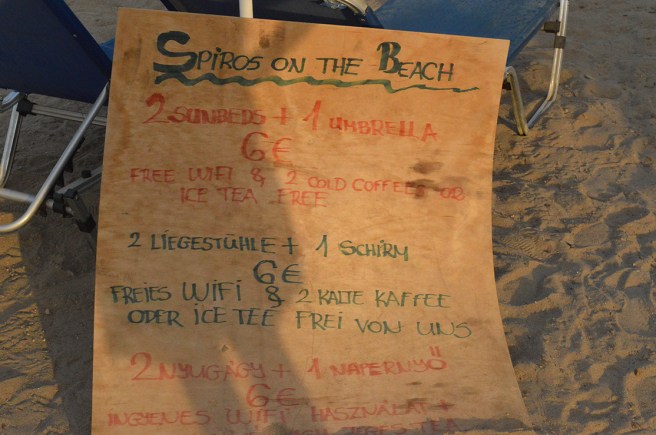 SPIROS ON THE BEACH
2 SUNBEDS + 1 UMBRELLA
6€
FREE WIFI & 2 COLD COFFEES OR
ICE TEA FREE
2 LIEGESTÜHLE + 1 SCHIRM
6€
FREIES WIFI & 2 KALTE KAFFEE
ODER ICE TEE FREI VON UNS
2 NYUGÁGY + 1 NAPERNYŐ
6€
INGYENES WIFI HASZNÁLAT +
TEA